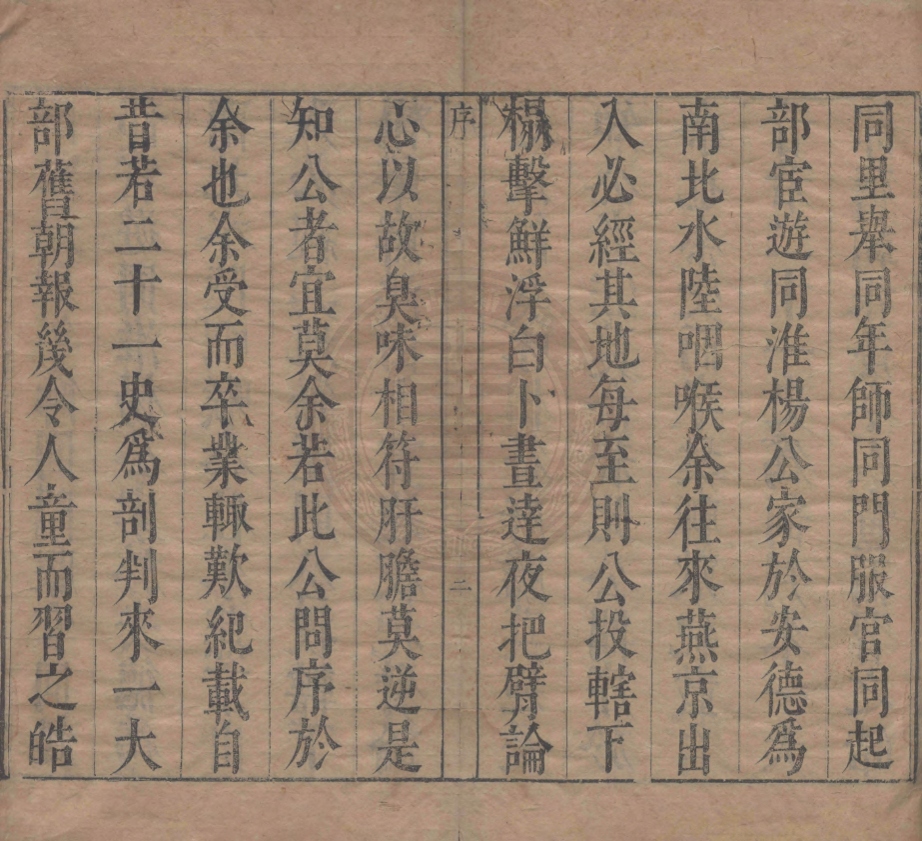 同里舉同年師同門服官同起
部宦遊同淮楊公家於安德爲
南北水陸咽喉余往來燕京出
入必經其地每至則公投轄下
榻擊鮮浮白卜晝達夜把臂論
序
二
心以故臭味相符肝膽莫逆是
知公者宜莫余若此公問序於
余也余受而卒業輙歎紀載自
昔若二十一史爲剖判來一大
部舊朝報幾令人童而習之皓